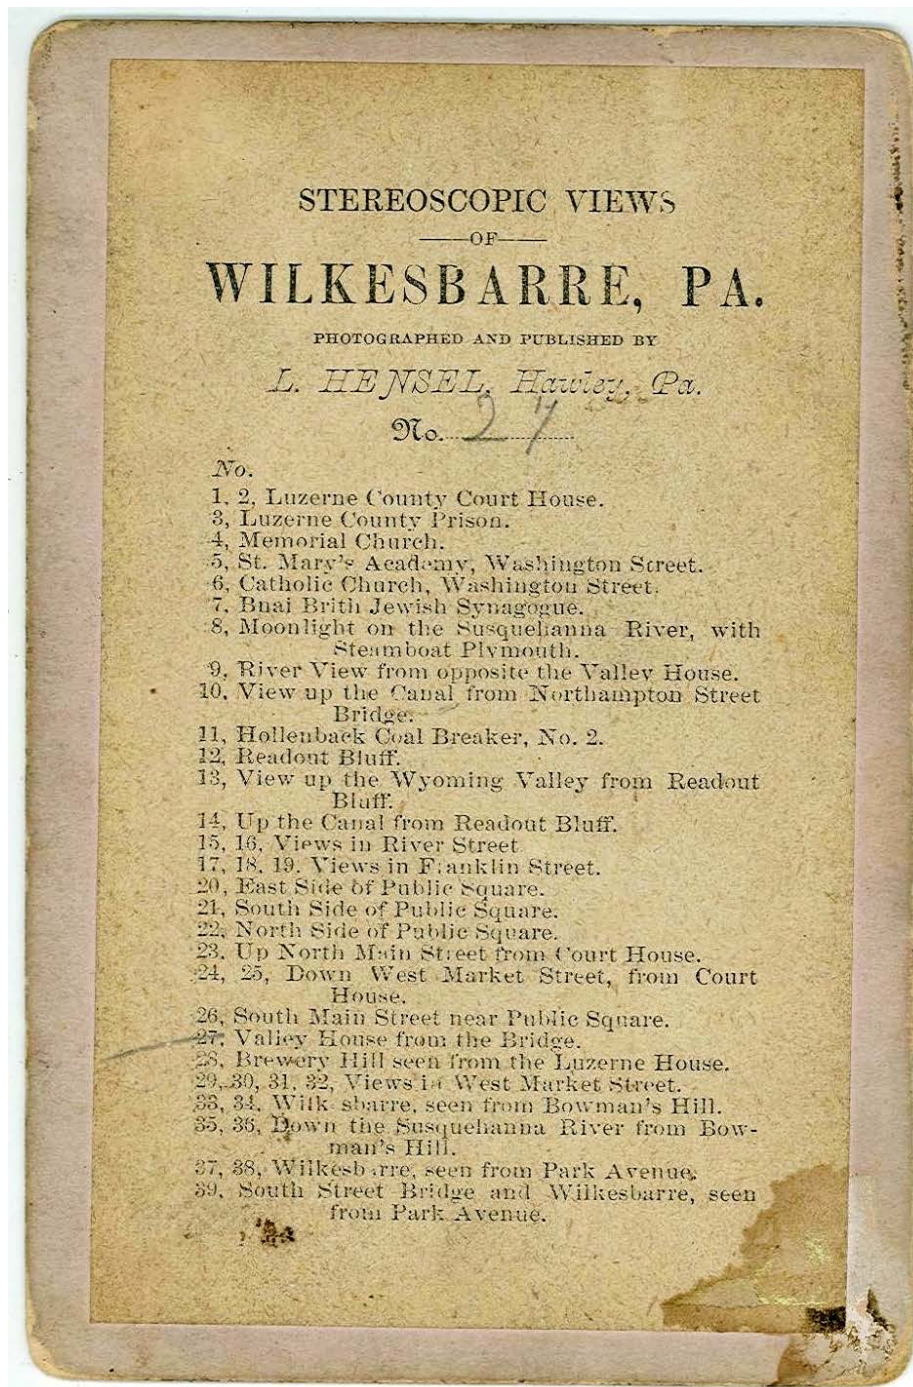 STEREOSCOPIC VIEWS
OF
WILKESBARRE, PA.
PHOTOGRAPHED AND PUBLISHED BY
L. HENSEL, Hawley, Pa.
No. 27
No.
1, 2, Luzerne County Court House.
3, Luzerne County Prison.
4, Memorial Church.
5, St. Mary's Academy, Washington Street.
6, Catholic Church, Washington Street.
7, Bnai Brith Jewish Synagogue.
8, Moonlight on the Susquehanna River, with
Steamboat Plymouth.
9, River View from opposite the Valley House.
10, View up the Canal from Northampton Street
Bridge.
11, Hollenback Coal Breaker, No. 2.
12, Readout Bluff.
13, View up the Wyoming Valley from Readout
Bluff.
14, Up the Canal from Readout Bluff.
15, 16, Views in River Street
17, 18, 19, Views in Franklin Street.
20, East Side of Public Square.
21, South Side of Public Square.
22, North Side of Public Square.
23, Up North Main Street from Court House.
24, 25, Down West Market Street, from Court
House.
26, South Main Street near Public Square.
27, Valley House from the Bridge.
28, Brewery Hill seen from the Luzerne House.
29, 30, 31, 32, Views in West Market Street.
33, 34, Wilk sbarre, seen from Bowman's Hill.
35, 36, Down the Susquehanna River from Bow-
man's Hill.
37, 38, Wilkesbarre, seen from Park Avenue.
39, South Street Bridge and Wilkesbarre, seen
from Park Avenue.